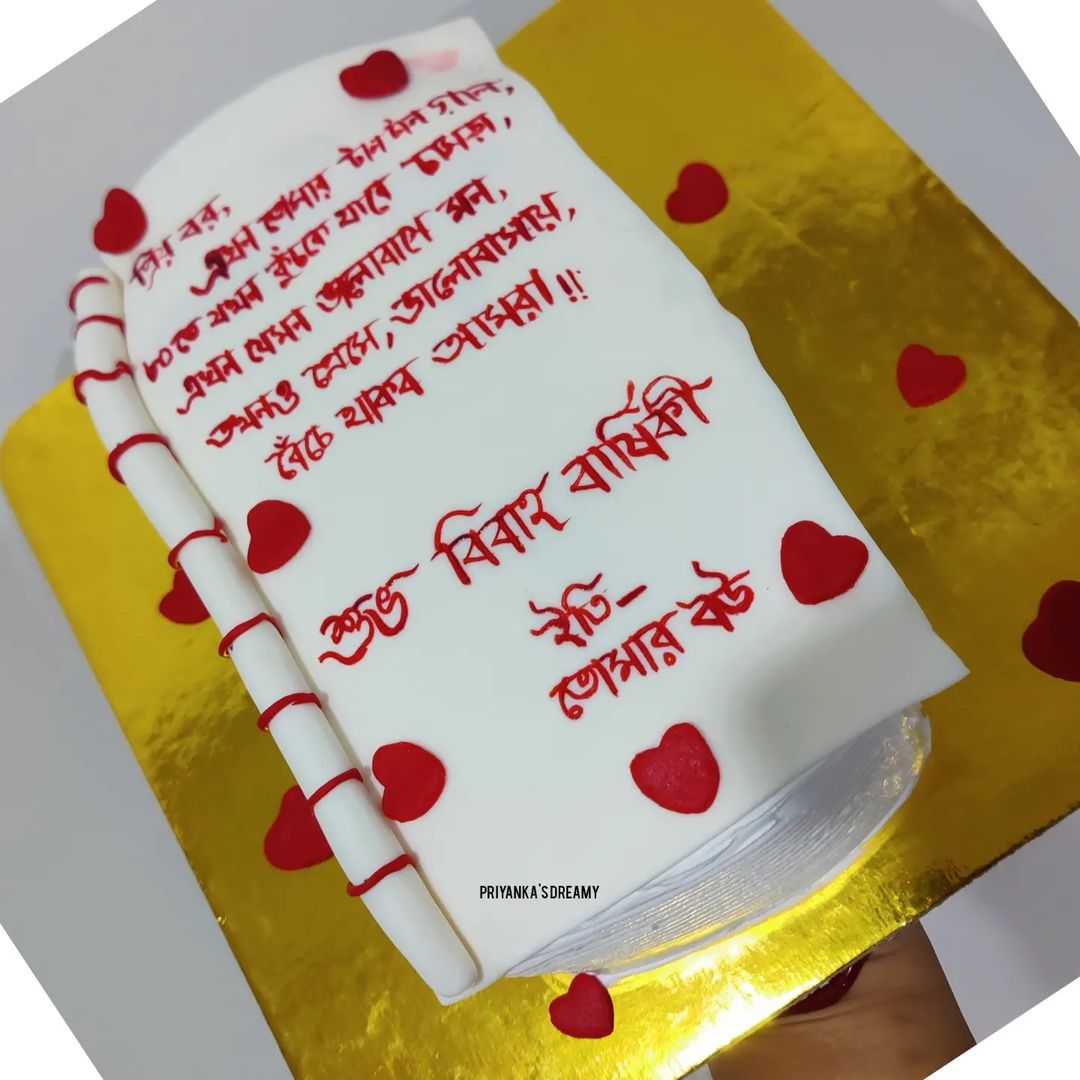 প্রিয় বর,
এখন তোমার টান টান গাল,
৮০তে যখন কুঁচকে যাবে চামড়া,
এখন যেমন ভালোবাসে মন,
তখনও প্রেমে, ভালোবাসায়,
বেঁচে থাকব আমরা!!
শুভ বিবাহ বার্ষিকী
ইতি–
তোমার বউ
PRIYANKA'S DREAMY